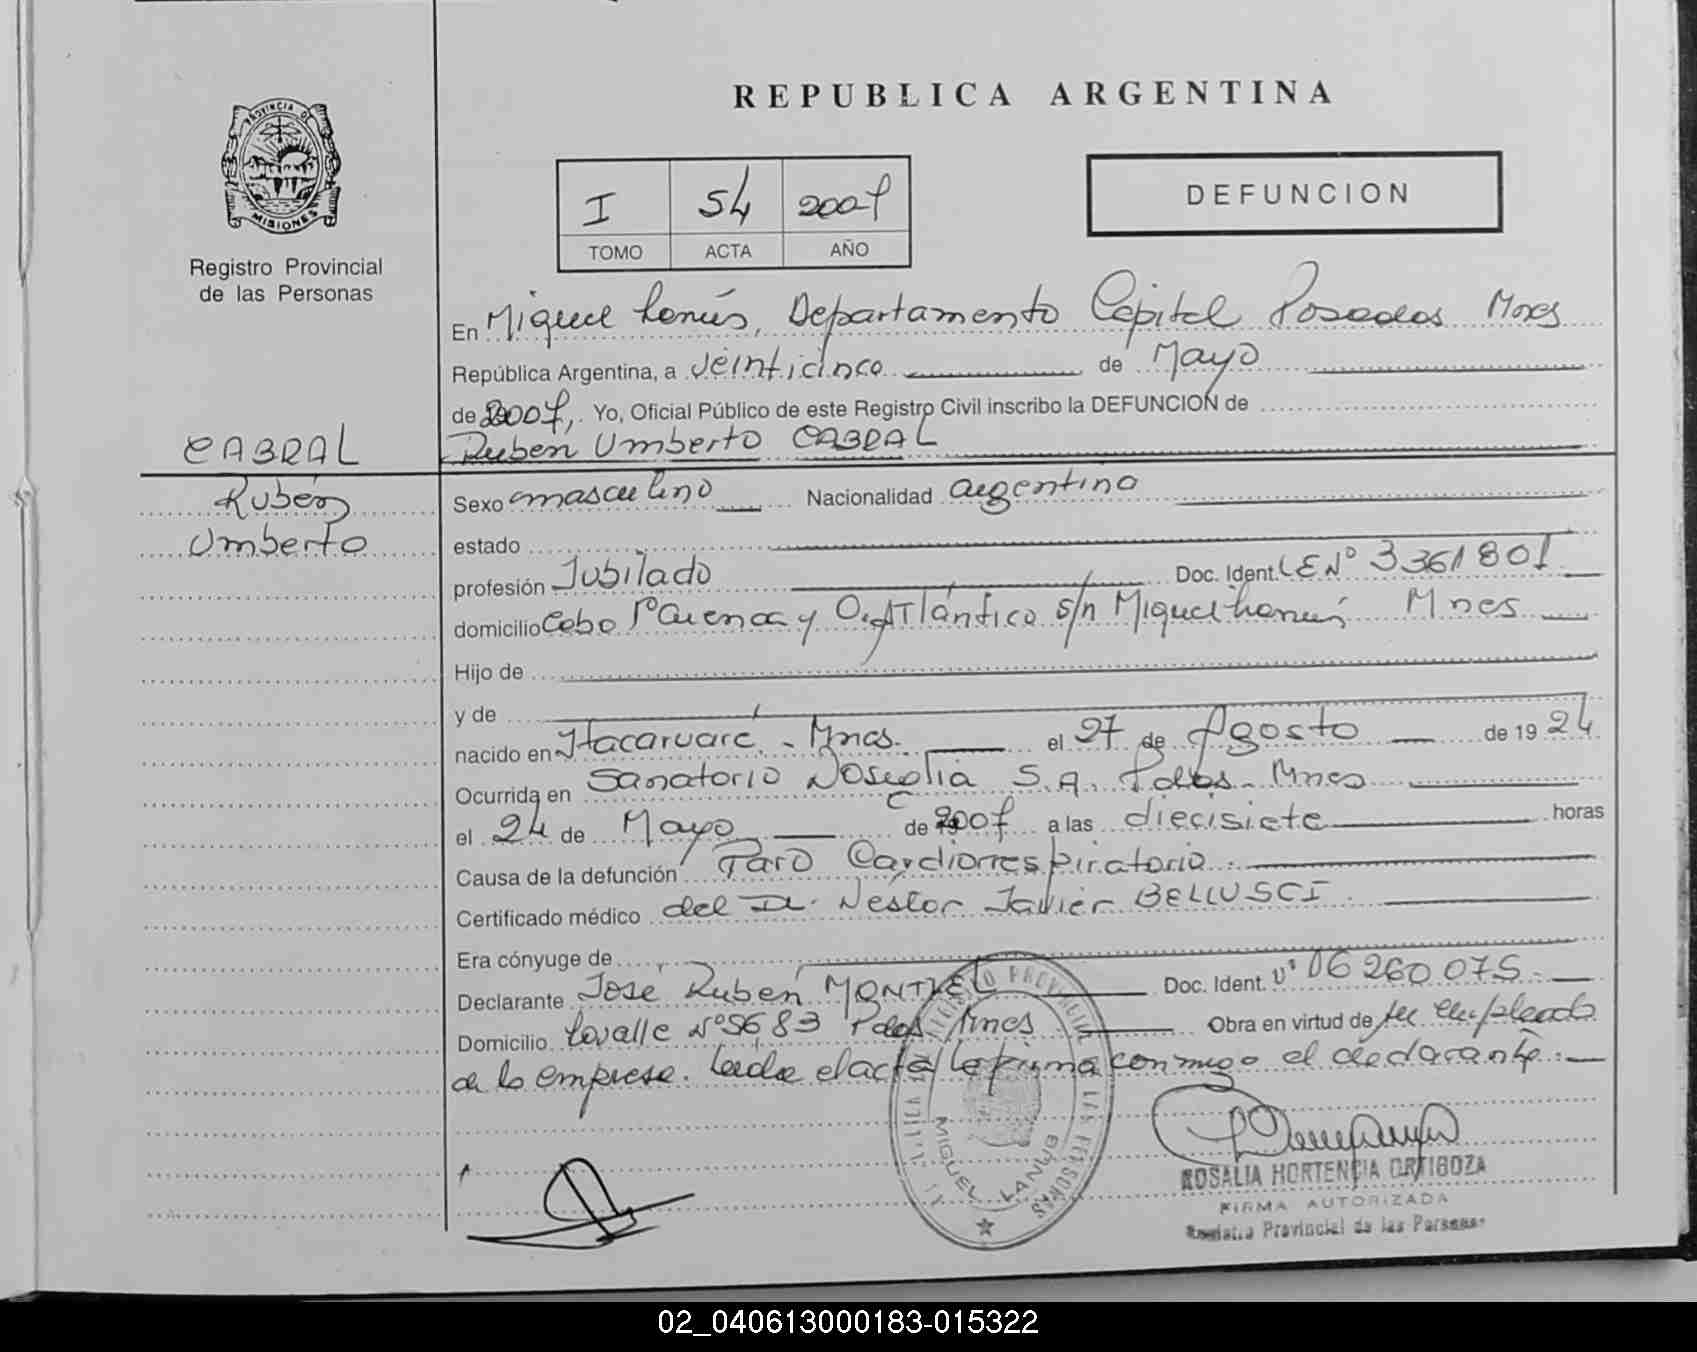 PROVINCIA DE
MISIONES
Registro Provincial
de las Personas
REPUBLICA ARGENTINA
I 54 2007
TOMO ACTA AÑO
DEFUNCION
En Miguel Lanús, Departamento Capital Posadas Mnes
República Argentina, a veinticinco de Mayo
de 2007, Yo, Oficial Público de este Registro Civil inscribo la DEFUNCION de
Ruben Umberto CABRAL
CABRAL
Rubén
Umberto
Sexo masculino Nacionalidad argentina
estado
profesión Jubilado Doc. Ident. LE Nº 3361801
domicilio Cabo 1º Cuenca y O. Atlántico s/n Miguel Lanús Mnes
Hijo de
y de
nacido en Itacaruaré - Mnes. el 27 de Agosto de 1924
Ocurrida en Sanatorio Nosiglia S.A. Pdas - Mnes
el 24 de Mayo de 2007 a las diecisiete horas
Causa de la defunción Paro Cardiorrespiratorio.
Certificado médico del Dr. Néstor Javier BELLUSCI
Era cónyuge de
Declarante José Rubén MONTIEL Doc. Ident. Nº 06260075
Domicilio Lavalle Nº 5683 Pdas Mnes Obra en virtud de ser empleado
de la empresa. Leída el acta la firma conmigo el declarante.
REGISTRO PROVINCIAL DE LAS PERSONAS
MIGUEL LANUS
ROSALIA HORTENCIA ORTIGOZA
FIRMA AUTORIZADA
Registro Provincial de las Personas
02_040613000183-015322